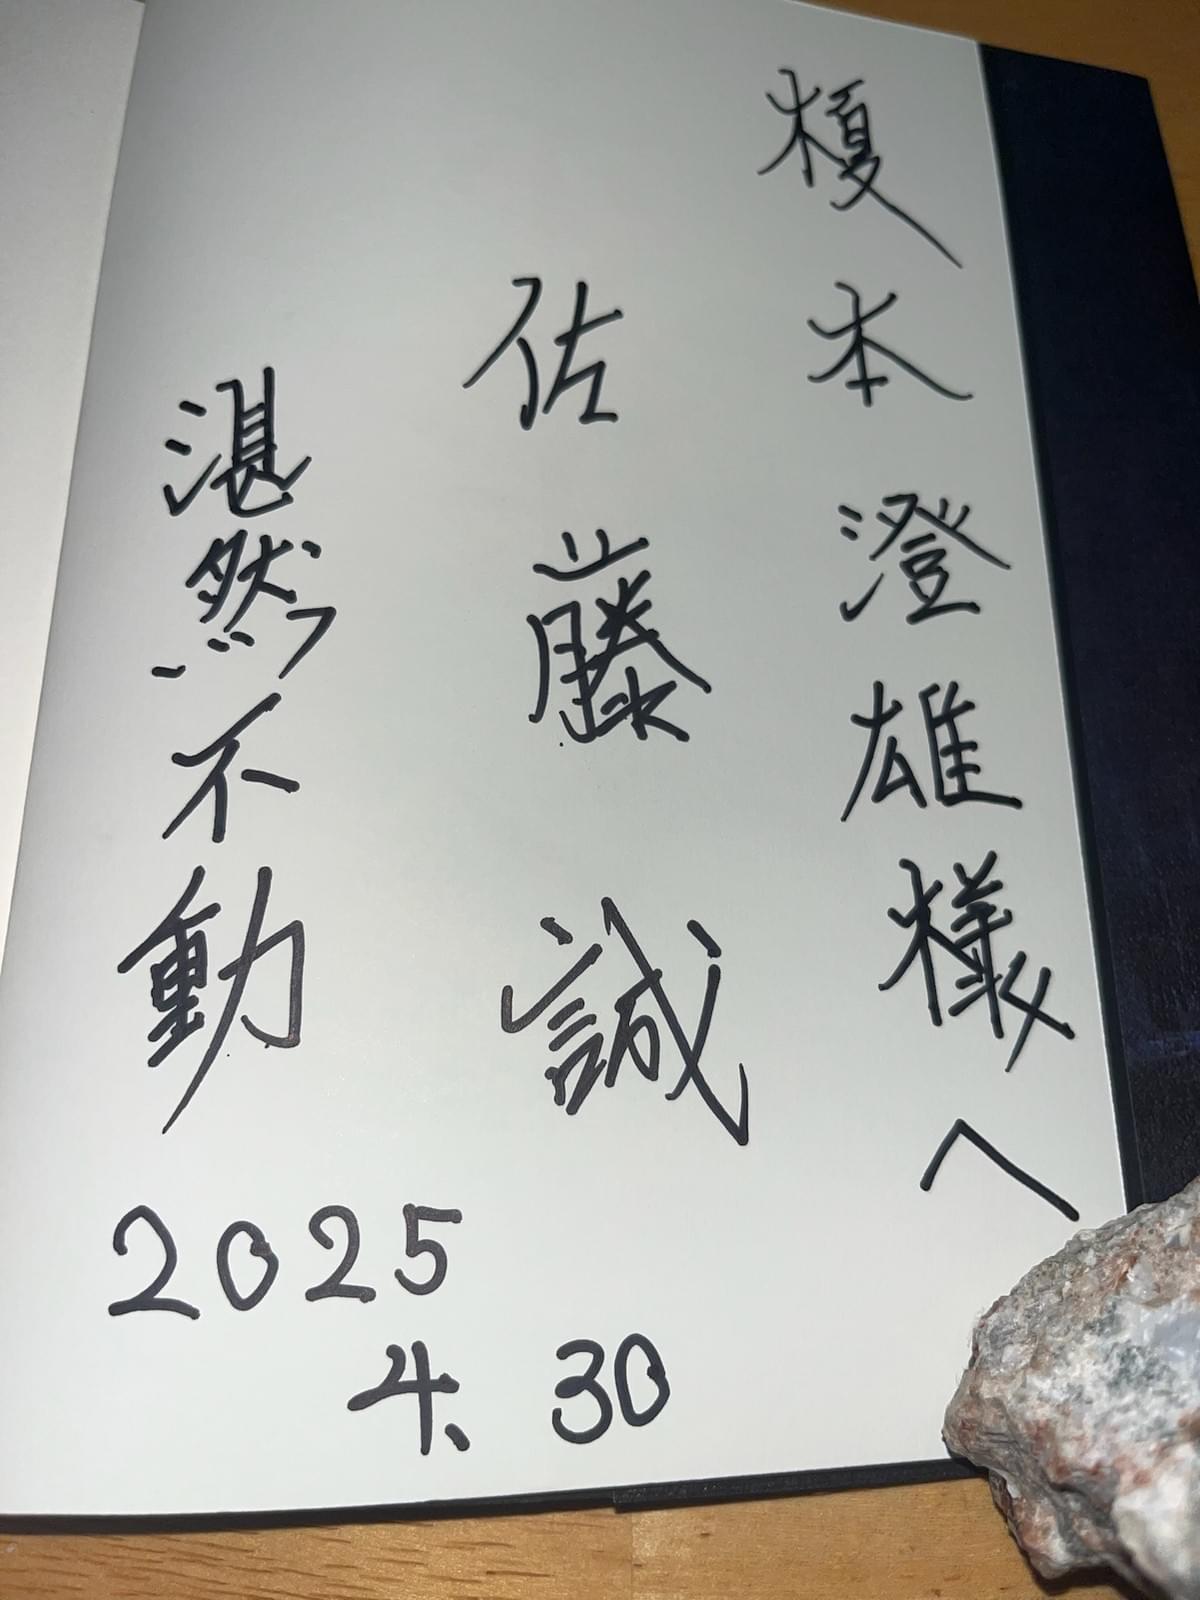 榎本澄雄様へ
佐藤誠
湛然不動
2025
4. 30